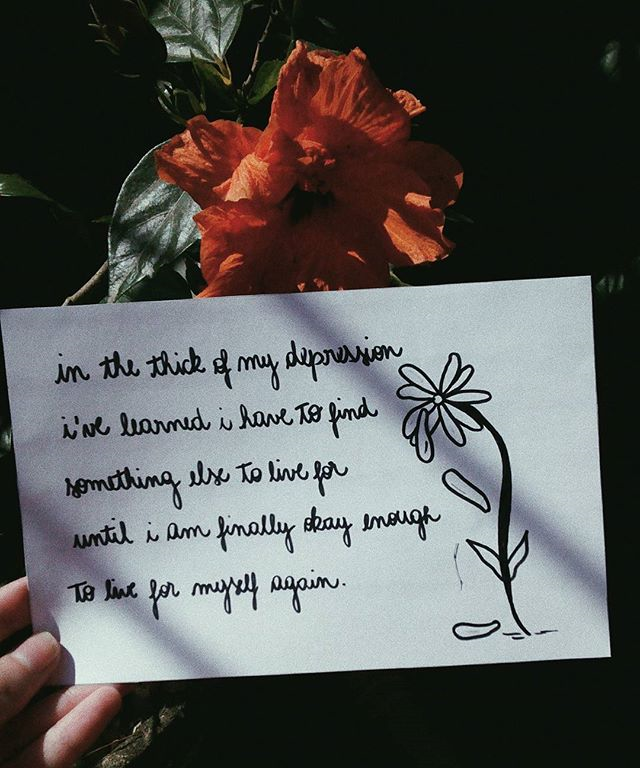 in the thick of my depression
i've learned i have to find
something else to live for
until i am finally okay enough
to live for myself again.